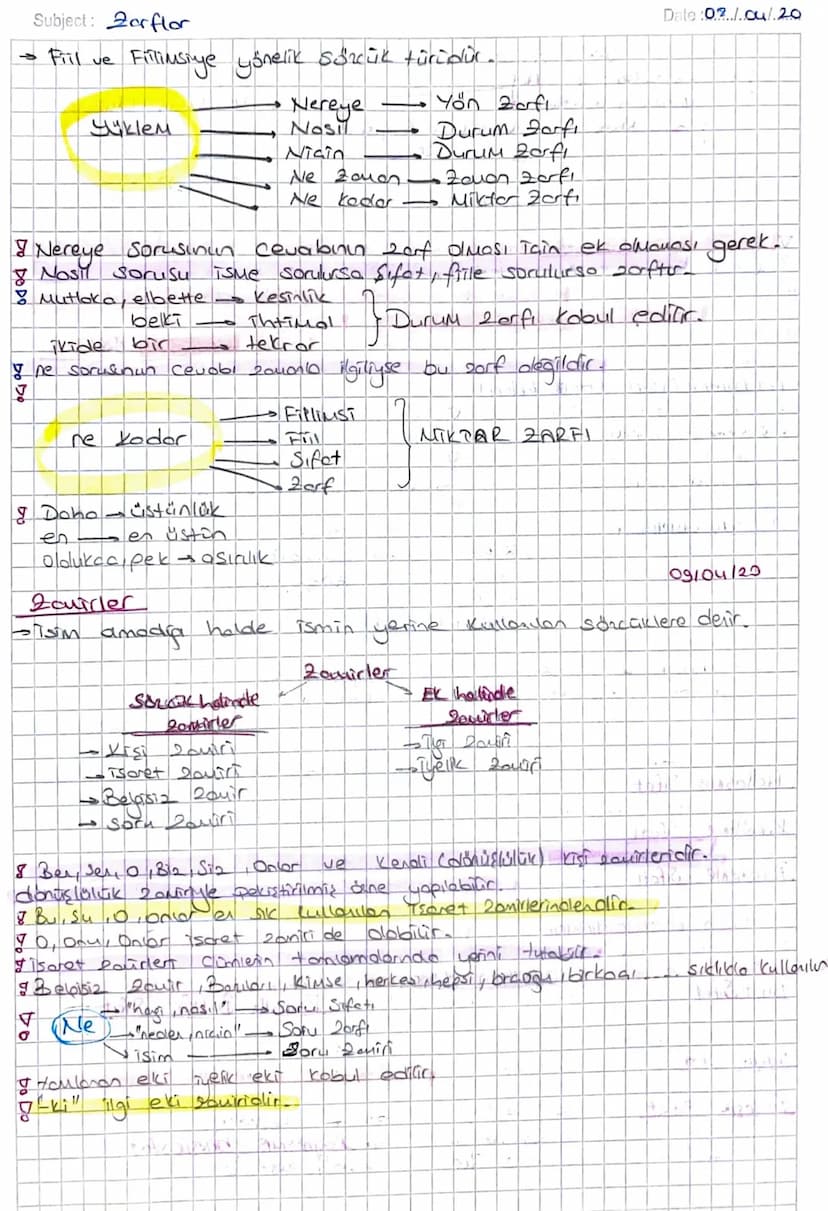 Subject: Zarflar
Date: 07./.04/.20
→ Fiil ve Fiilimsiye yönelik sözcük türüdür.
Yüklem
→ Nereye → Yön Zarfı
→ Nasıl → Durum Zarfı
→ Niçin → Durum Zarfı
→ Ne zaman → Zaman zarfı
→ Ne kadar → Miktar zarfı
Nereye sorusunun cevabının zarf olması için ek olmaması gerek.
Nasıl sorusu isme sorulursa sıfat, fiile sorulursa zarftır.
Mutlaka, elbette → kesinlik
belki → ihtimal } Durum zarfı kabul edilir.
ikide bir → tekrar
ne sorusunun cevabı zamanla ilgiliyse bu zarf değildir.
ne kadar
→ Fiilimsi
→ Fiil
→ Sıfat
→ Zarf
MİKTAR ZARFI
Daha → üstünlük
en → en üstün
oldukça, pek → aşırılık
09/04/20
Zamirler
→ İsim olmadığı halde ismin yerine kullanılan sözcüklere denir.
Zamirler
Sözcük halinde zamirler
→ Kişi zamiri
→ işaret zamiri
→ Belgisiz zamir
→ soru zamiri
EK halinde zamirler
→ İlgi zamiri
→ İyelik zamiri
Ben, sen, o, Biz, Siz, Onlar ve kendi (dönüşlülük) kişi zamirleridir.
dönüşlülük zamiriyle pekiştirilmiş özne yapılabilir.
Bu, şu, o, onlar en sık kullanılan işaret zamirlerindendir.
O, onu, onlar işaret zamiri de olabilir.
işaret zamirleri cümlenin tamlamalarında yerini tutabilir.
Belgisiz zamir, Bazıları, kimse, herkes, hepsi, birçoğu, birkaçı .... sıklıkla kullanılır
Ne
→ "hangi, nasıl" → Soru sıfatı
→ "neden, niçin" → Soru zarfı
→ isim → Soru zamiri
tamlanan eki iyelik eki kabul edilir.
"-ki" ilgi eki zamiridir.